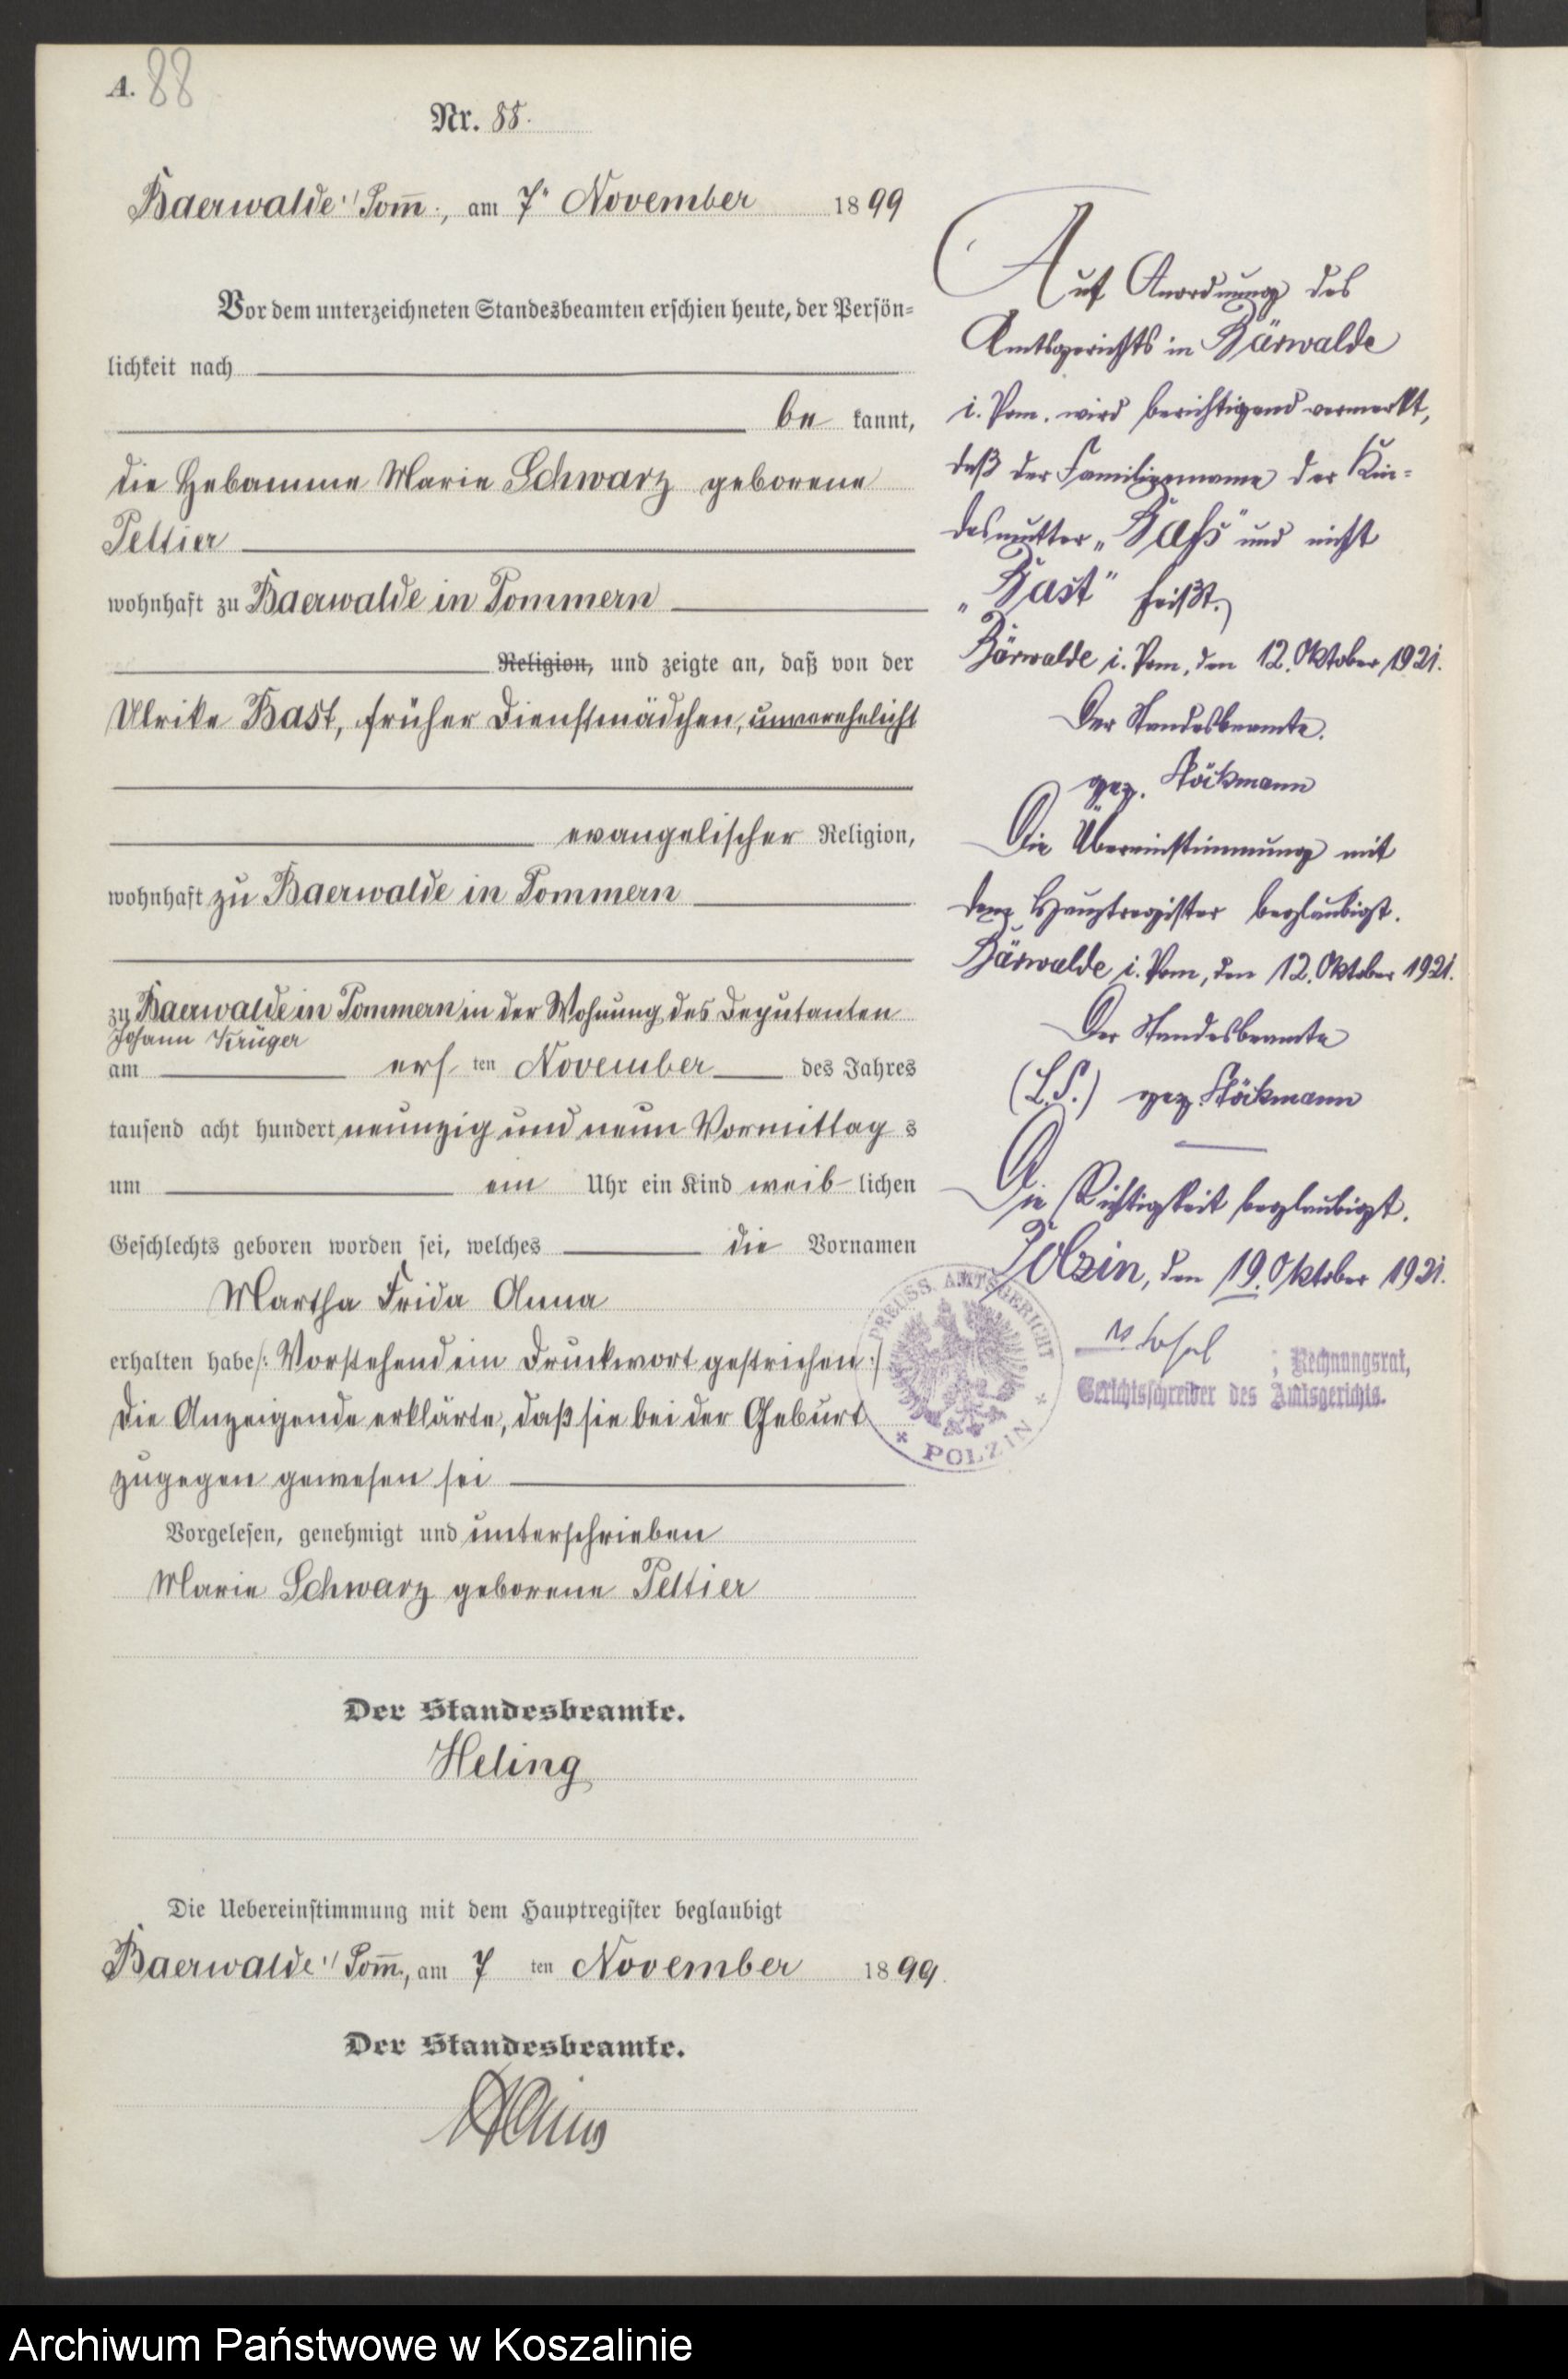 A. 88
Nr. 88.
Baerwalde i/Pom̅., am 7. November 1899
Vor dem unterzeichneten Standesbeamten erschien heute, der Persön=
lichkeit nach
be kannt,
die Hebamme Marie Schwarz geborene
Peltier
wohnhaft zu Baerwalde in Pommern
Religion, und zeigte an, daß von der
Ulrike Bast, früher Dienstmädchen, unverehelicht
evangelischer Religion,
wohnhaft zu Baerwalde in Pommern
zu Baerwalde in Pommern in der Wohnung des Deputanten
Johann Krüger
am ersten November des Jahres
tausend acht hundert neunzig und neun Vormittags
um ein Uhr ein Kind weiblichen
Geschlechts geboren worden sei, welches die Vornamen
Martha Frida Anna
erhalten habe /: Vorstehend ein Druckwort gestrichen :/
Die Anzeigende erklärte, daß sie bei der Geburt
zugegen gewesen sei
Vorgelesen, genehmigt und unterschrieben
Marie Schwarz geborene Peltier
Der Standesbeamte.
Heling
Die Uebereinstimmung mit dem Hauptregister beglaubigt
Baerwalde i/Pom̅., am 7 ten November 1899.
Der Standesbeamte.
Auf Anordnung des
Amtsgerichts in Bärwalde
i. Pom. wird berichtigend vermerkt,
daß der Familienname der Kin=
desmutter „Baß" und nicht
„Bast" heißt.
Bärwalde i. Pom, den 12. Oktober 1921.
Der Standesbeamte.
gez. Stöckmann
Die Übereinstimmung mit
dem Hauptregister beglaubigt.
Bärwalde i. Pom, den 12. Oktober 1921.
Der Standesbeamte
(L.S.) gez. Stöckmann
Die Richtigkeit beglaubigt.
Polzin, den 19. Oktober 1921.
, Rechnungsrat,
Gerichtsschreiber des Amtsgerichts.
PREUSS. AMTSGERICHT
POLZIN
Archiwum Państwowe w Koszalinie